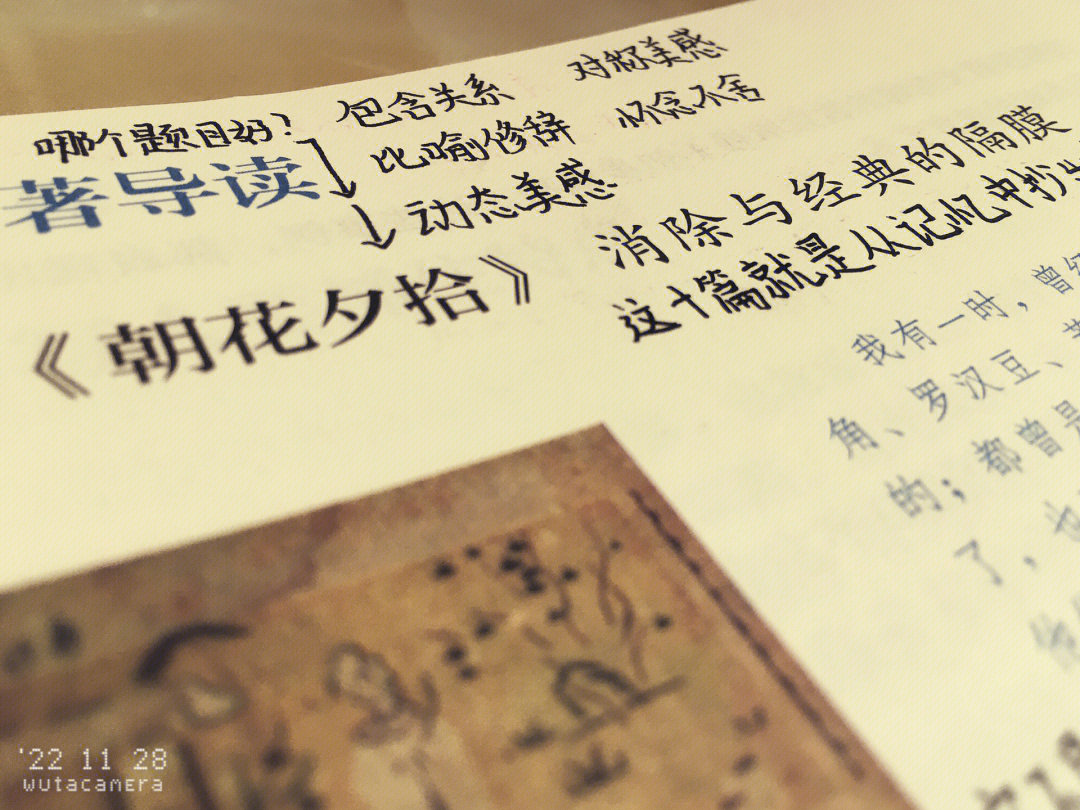 哪个题目好？ 包含关系 对称美感
著导读 比喻修辞 怀念不舍
动态美感
《朝花夕拾》 消除与经典的隔膜
这十篇就是从记忆中抄
我有一时，曾经
角、罗汉豆、
的；都曾是
了，也
他
'22 11 28
wutacamera